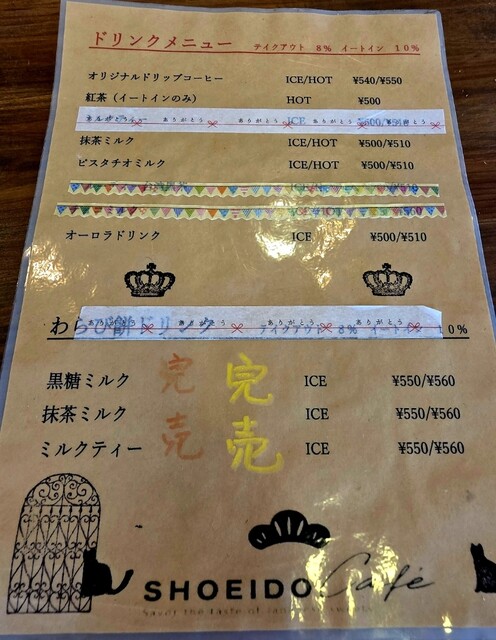 ドリンクメニュー テイクアウト 8% イートイン 10%
オリジナルドリップコーヒー ICE/HOT ¥540/¥550
紅茶（イートインのみ） HOT ¥500
ありがとう ありがとう ありがとう ICE ありがとう
抹茶ミルク ICE/HOT ¥500/¥510
ピスタチオミルク ICE/HOT ¥500/¥510
ICE/HOT
オーロラドリンク ICE ¥500/¥510
わらび餅ドリンク テイクアウト 8% イートイン 10%
ありがとう ありがとう ありがとう ありがとう
黒糖ミルク ICE ¥550/¥560
抹茶ミルク ICE ¥550/¥560
ミルクティー ICE ¥550/¥560
完売 完売
SHOEIDO Café
Savor the taste of